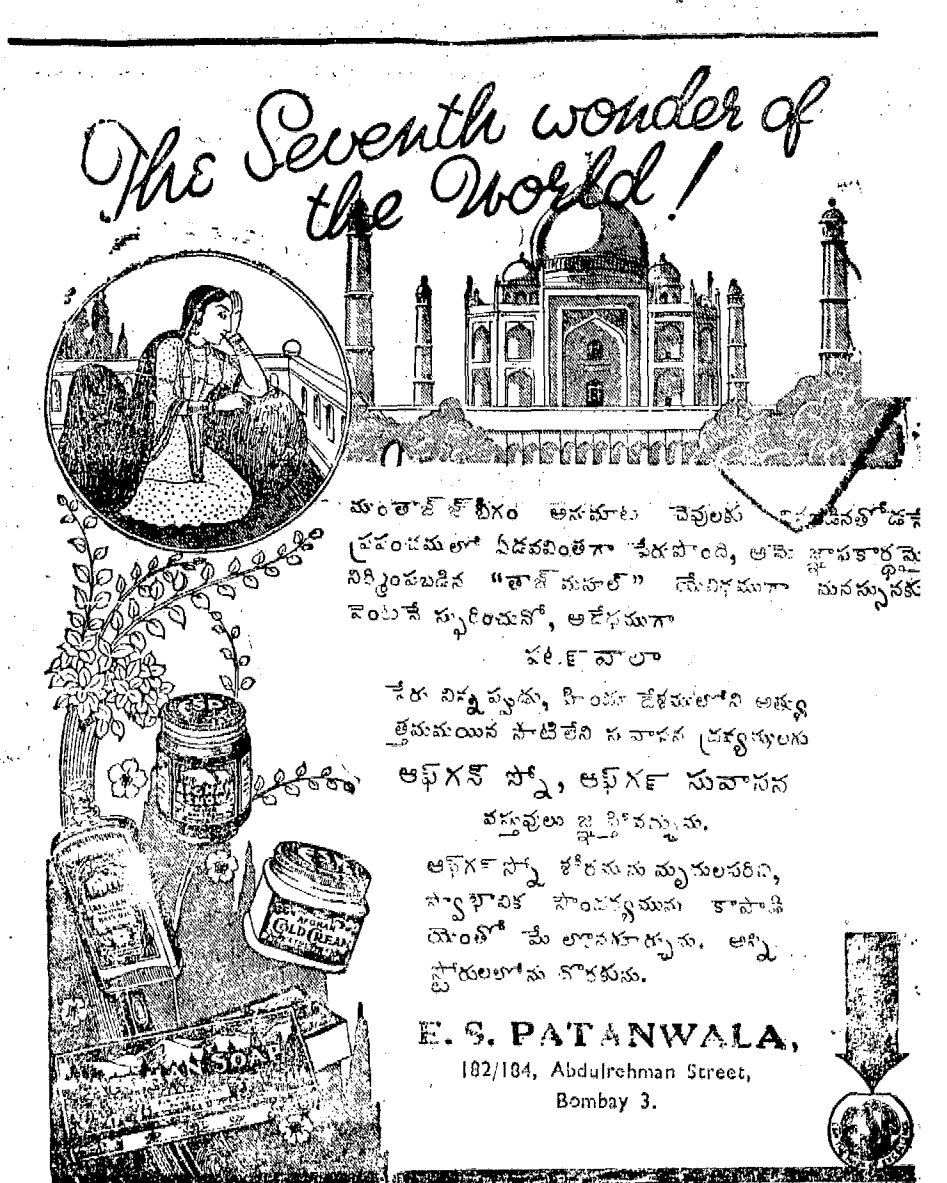 The Seventh wonder of
the World!
ముంతాజ్ బీగం అనుమాట చెవులకు
ప్రపంచములో ఏడవవింతగా పేరుపొంది, ఆమె జ్ఞాపకార్థమై
నిర్మింపబడిన "తాజ్ మహల్" యేవిధముగా మనస్సునకు
వెంటనే స్ఫురించునో, అదేవిధముగా
పటన్ వాలా
పేరు విన్నప్పుడు, హిందూ దేశములోని అత్యు
త్తమమయిన సాటిలేని సువాసన ద్రవ్యములగు
ఆఫ్‌గన్ స్నో, ఆఫ్‌గన్ సువాసన
వస్తువులు జ్ఞప్తికివచ్చును.
ఆఫ్‌గన్ స్నో శరీరమును మృదులపరచి,
స్వాభావిక సౌందర్యమును కాపాడి
యెంతో మేలొనగూర్చును. అన్ని
స్టోరులలోను దొరకును.
E. S. PATANWALA,
182/184, Abdulrehman Street,
Bombay 3.
AFGHAN
COLD CREAM
SOAP